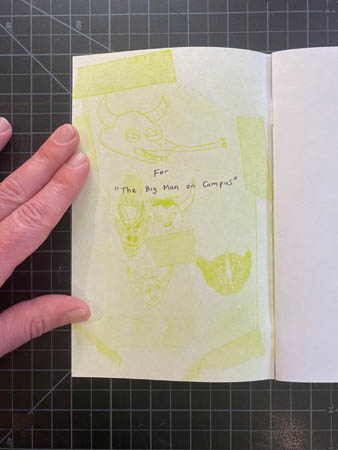 For
"The Big Man on Campus"